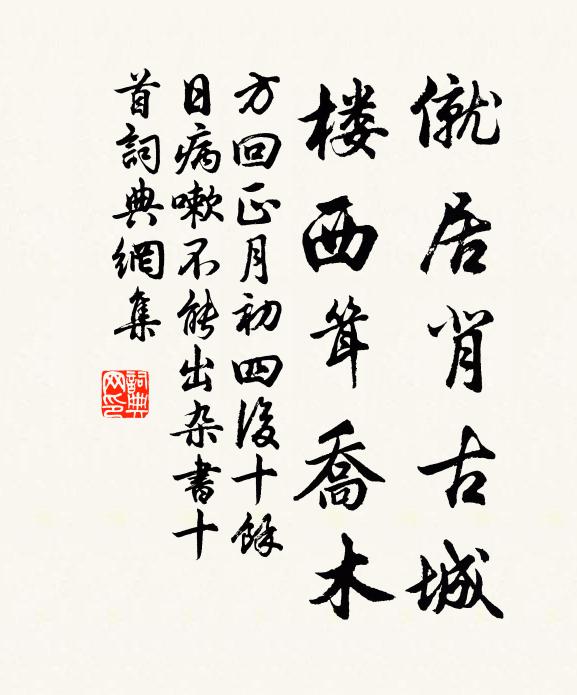 僦居肖古城
楼西耸喬木
方回正月初四後十餘
日病嗽不能出杂書十
首詞典網集
詞典网印